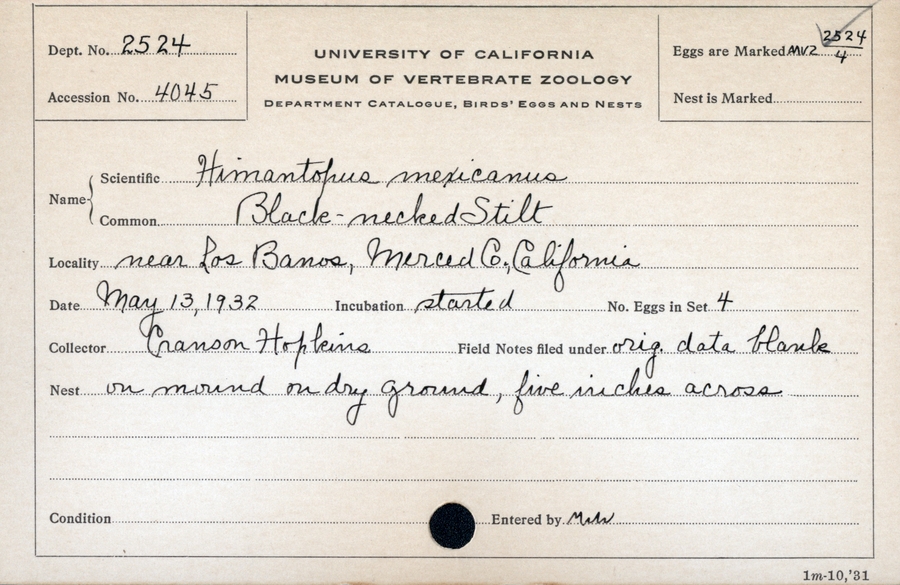 Dept. No. 2524
Accession No. 4045
UNIVERSITY OF CALIFORNIA
MUSEUM OF VERTEBRATE ZOOLOGY
DEPARTMENT CATALOGUE, BIRDS' EGGS AND NESTS
Eggs are Marked MVZ 2524/4
Nest is Marked
Name
Scientific Himantopus mexicanus
Common Black-necked Stilt
Locality near Los Banos, Merced Co., California
Date May 13, 1932 Incubation started No. Eggs in Set 4
Collector Cranson Hopkins Field Notes filed under orig. data blank
Nest on mound on dry ground, five inches across
Condition Entered by
1m-10,'31